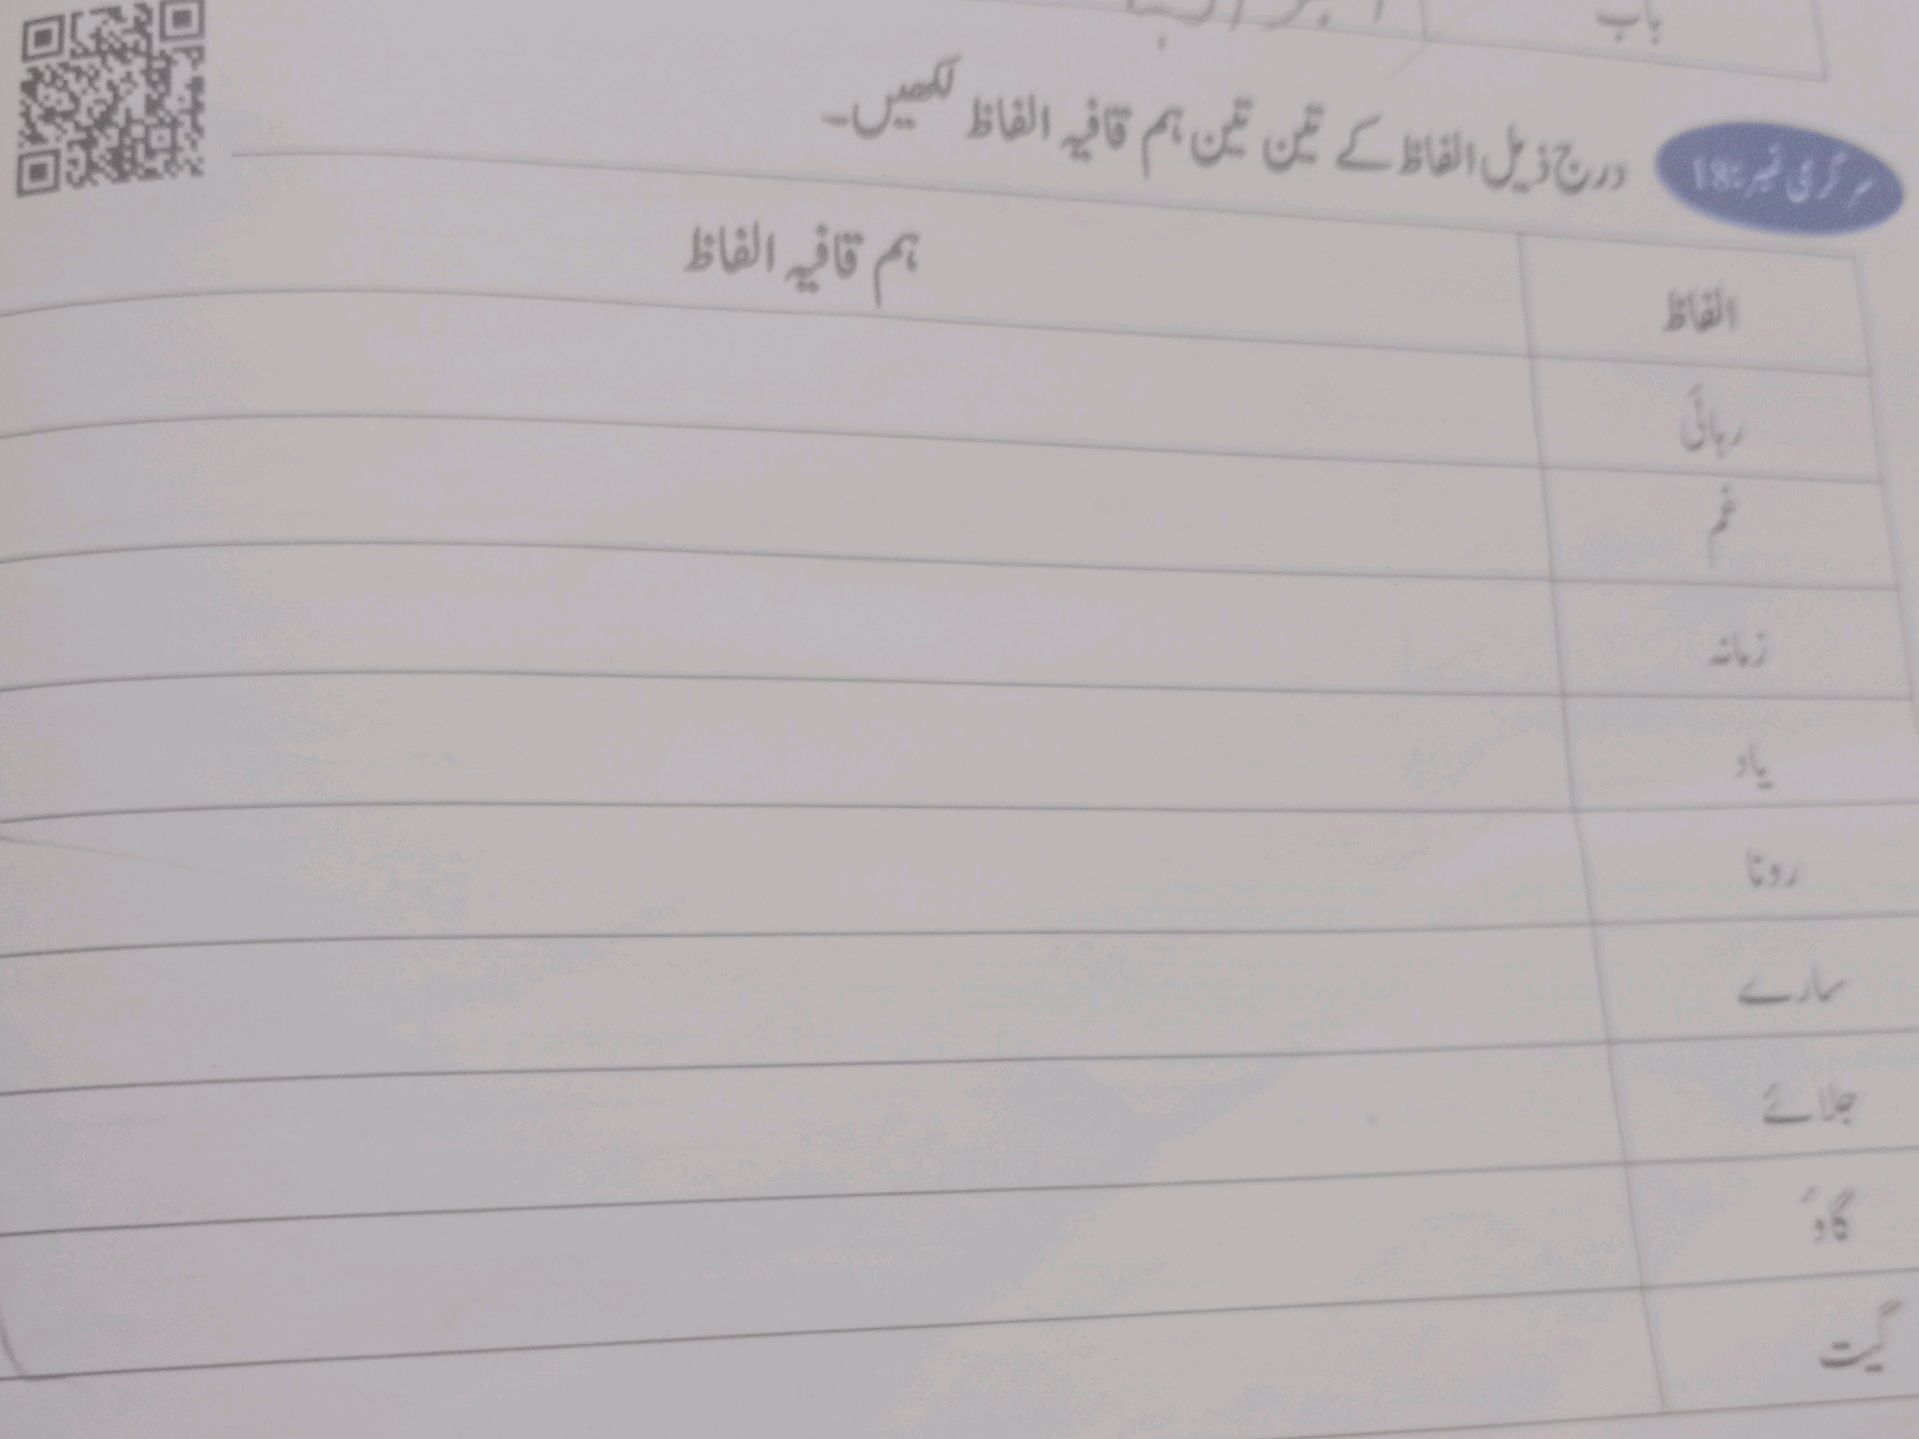 باب
سرگرمی نمبر:18 درج ذیل الفاظ کے تین تین ہم قافیہ الفاظ لکھیں۔
الفاظ ہم قافیہ الفاظ
رہائی
غم
زمانہ
یاد
رونا
سارے
جلائے
گاؤ
گیت